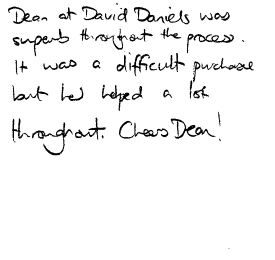 Dean at David Daniels was
superb throughout the process.
It was a difficult purchase
but he helped a lot
throughout. Cheers Dean!